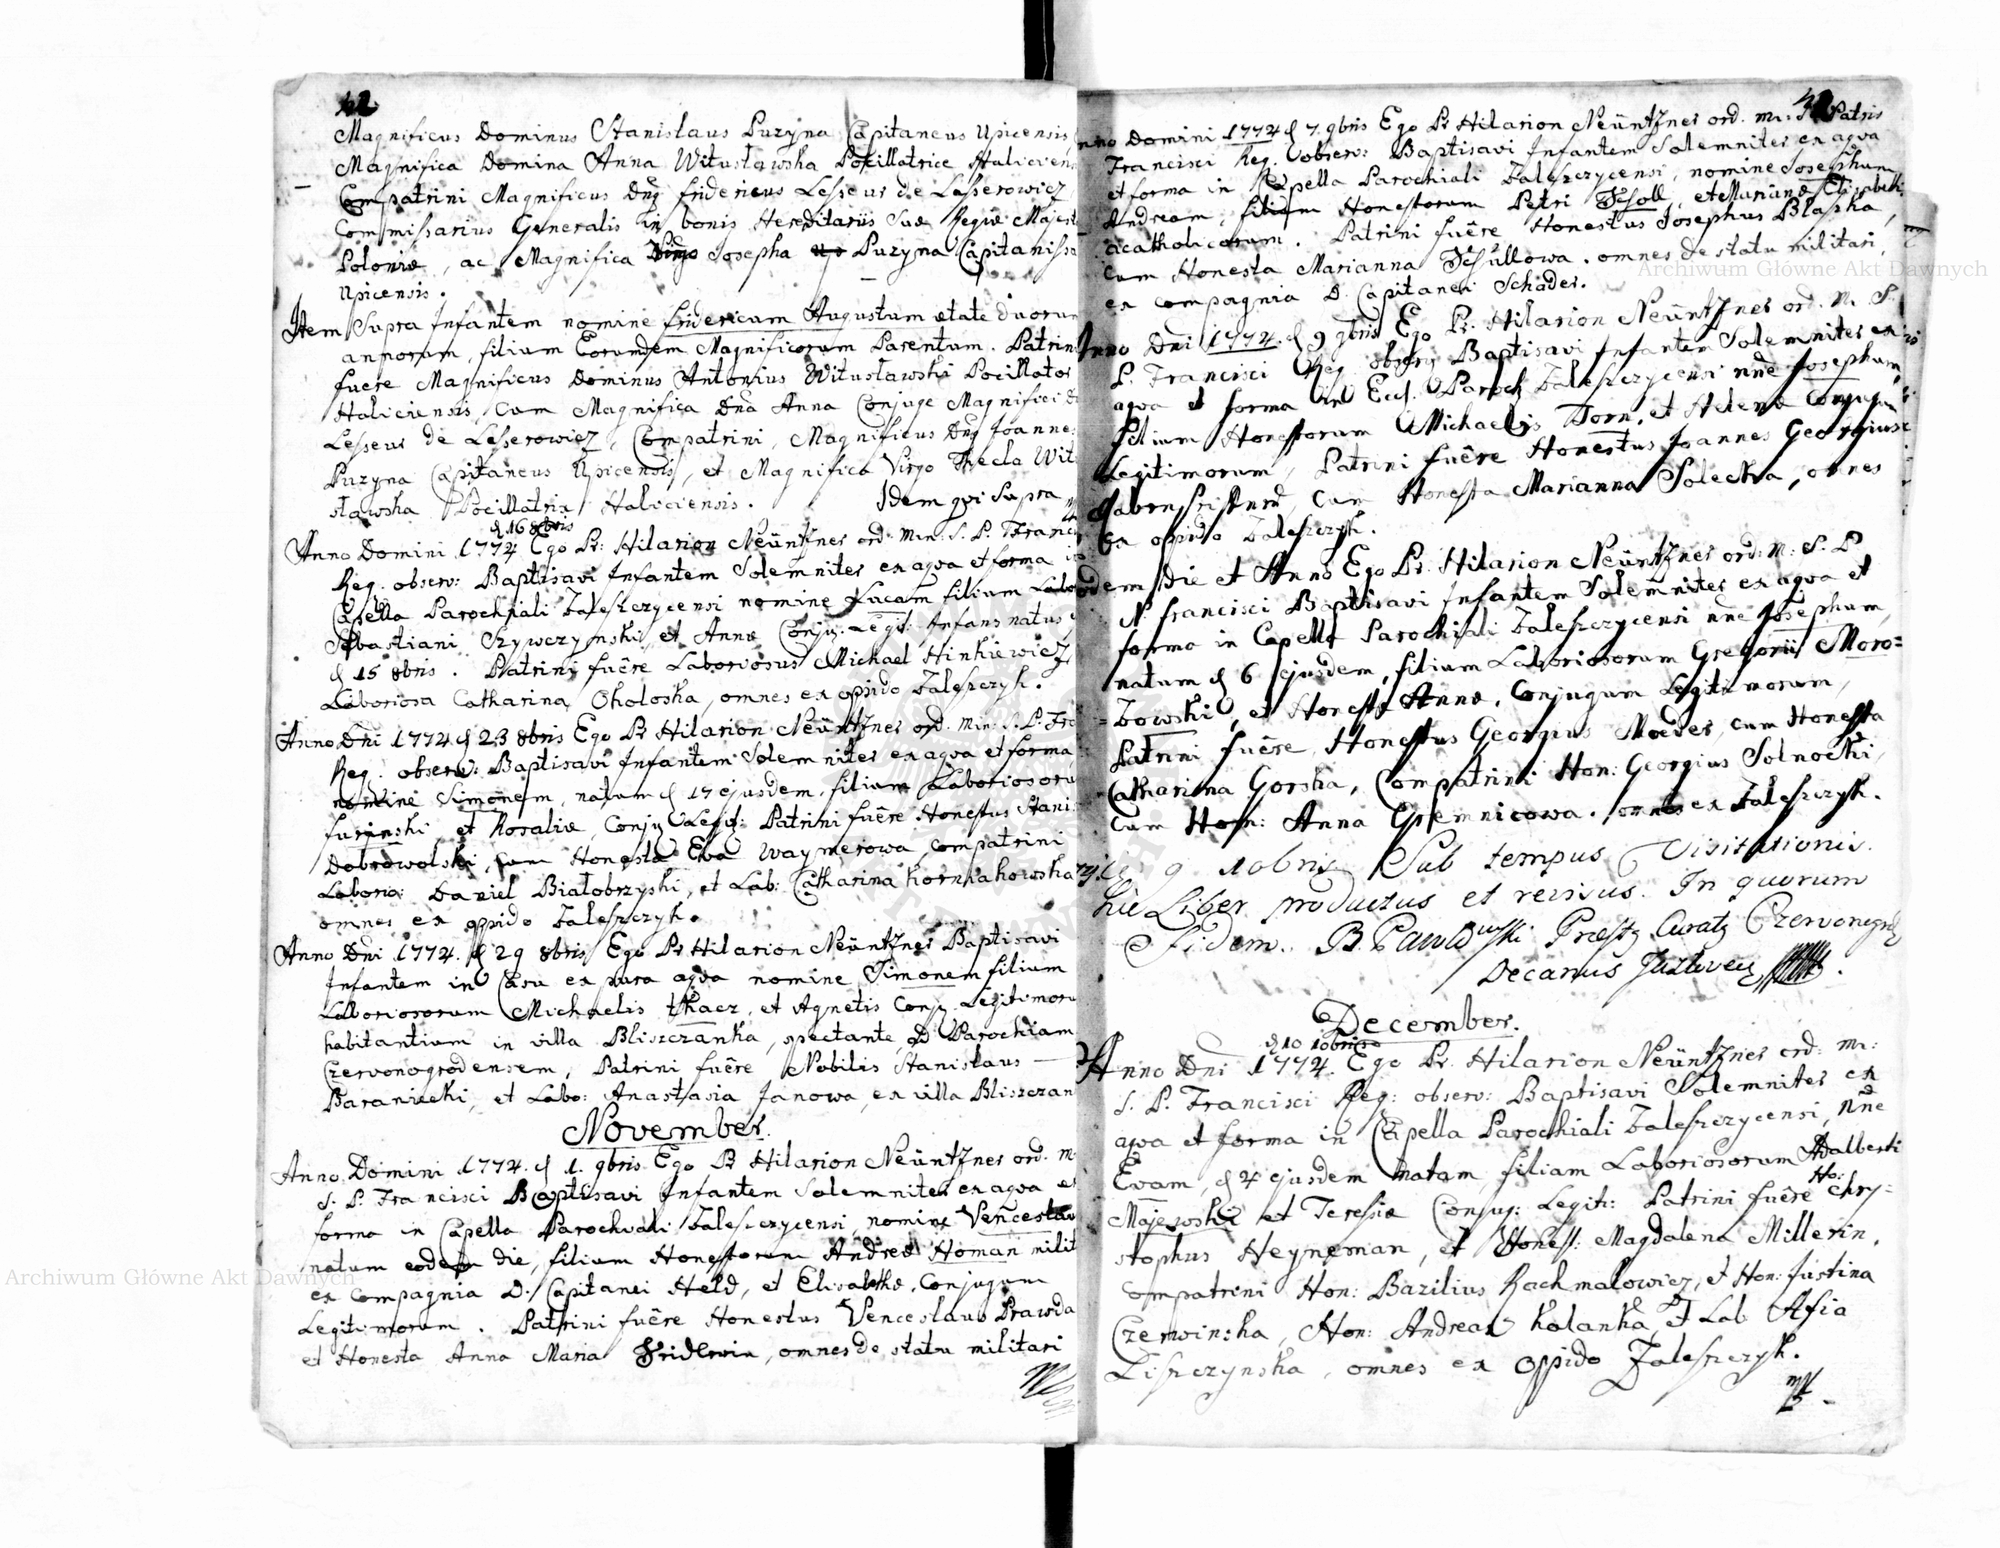 42
Magnificus Dominus Stanislaus Puzyna Capitaneus Upicensis,
Magnifica Domina Anna Witusławska Pocillatrice Halicien
Compatrini Magnificus Dng Fridericus Lesseur de Lesserowicz
Commissarius Generalis in bonis Hereditariis Suæ Regiæ Majest
Poloniæ, ac Magnifica Josepha Puzyna Capitanissa
Upicensis.
Item Supra Infantem nomine Fridericum Augustum ætate duorum
annorum, filium Eorumdem Magnificorum Parentum. Patrini
fuere Magnificus Dominus Antonius Witusławski Pocillator
Haliciensis, Cum Magnifica Dna Anna Conjuge Magnifici
Lesseur de Lesserowicz, Compatrini, Magnificus Dng Joannes
Puzyna Capitaneus Upicensis, et Magnifica Virgo Thecla Witu
sławska Pocillatrix Haliciensis. Idem qvi Supra
d 16 8bris
Anno Domini 1774 Ego Pr: Hilarion Neüntzner ord: Min: S. P. Franci
Reg. observ: Baptisavi Infantem Solemniter ex aqva et forma in
Capella Parochiali Zaleszczycensi nomine Lucam filium Labo
Sebastiani Szywczynski, et Annæ Conju: Legit: Infans natus
d 15 8bris. Patrini fuêre Laboriosus Michael Hinkiewicz
Laboriosa Catharina Okoloska, omnes ex oppido Zaleszczyk.
Anno Dni 1774 d 23 8bris Ego Pr Hilarion Neüntzner ord. Min: S. P. Fra
Reg: observ: Baptisavi Infantem Solemniter ex aqva et forma,
nomine Simonem, natum d 17 ejusdem, filium Laboriosoru
furinski, et Rosaliæ, Conju Legit: Patrini fuêre Honestus Stani
Dobrowolski, cum Honesta Eva Waymerowa, compatrini
Laborio: Daniel Białobrzyski, et Lab: Catharina Korniakowska
omnes ex oppido Zaleszczyk.
Anno Dni 1774. d 29 8bris Ego Pr Hilarion Neüntzner Baptisavi
Infantem in Casu ex pura aqva nomine Simonem filium
Laboriosorum Michaelis tkacz, et Agnetis Conju. Legitimoru
habitantium in villa Bliszczanka, spectante ad Parochiam
Czerwonogrodensem, Patrini fuêre Nobilis Stanislaus
Baraniecki, et Labo: Anastasia Janowa, ex villa Bliszczan
November.
Anno Domini 1774. d 1. 9bris Ego Pr Hilarion Neüntzner ord. m
S. P. Francisci Baptisavi Infantem Solemniter ex aqva et
forma in Capella Parochiali Zaleszczycensi, nomine Venceslau
natum eodem die, filium Honestorum Andreæ Homan milit
ex compagnia D. Capitanei Held, et Elisabethæ, Conjugum
Legitimorum. Patrini fuêre Honestus Venceslaus Prawda
et Honesta Anna Maria Fridlerin, omnes de statu militari
Anno Domini 1774 d 7. 9bris Ego Pr Hilarion Neüntzner ord. m: S. Patris
Francisci Reg. observ: Baptisavi Infantem Solemniter ex aqva
et forma in Capella Parochiali Zaleszczycensi, nomine Josephum
Andream, filium Honestorum Petri Tscholl, et Mariannæ Elisabeth
acatholicorum. Patrini fuêre Honestus Josephus Blaska,
cum Honesta Marianna Tschullowa. omnes de statu militari,
ex compagnia D. Capitanei Schader.
Anno Dni 1774. d 9 9bris Ego Pr. Hilarion Neüntzner ord. M. S.
P. Francisci Reg. observ Baptisavi Infantem Solemniter ex
aqva et forma in Eccl. Paroch Zaleszczycensi nne Josephum,
filium Honestorum Michaelis Torn, et Helenæ Conjugum
Legitimorum, Patrini fuêre Honestus Joannes Georgius
cum Honesta Marianna Solecka, omnes
Ex oppido Zaleszczyk.
odem Die et Anno Ego Pr. Hilarion Neüntzner ord: M: S. P
N: Francisci Baptisavi Infantem Solemniter ex aqva et
forma in Capella Parochiali Zaleszczycensi nne Josephum,
natum d 6 ejusdem, filium Laboriosorum Gregorii Moro=
=Zowski, et Honestæ Annæ, Conjugum Legitimorum,
Patrini fuêre, Honestus Georgius Moeder, cum Honesta
Catharina Gorska, Compatrini Hon: Georgius Solnocki,
cum Hon: Anna Gremnicowa. omnes ex Zaleszczyk.
9 10bris Sub tempus Visitationis
hic Liber productus et revisus. In quorum
Fidem. B. Pawłowski Præstq Curatq Czerwonogrod
Decanus
December.
d 10 10bris
Anno Dni 1774. Ego Pr Hilarion Neüntzner ord: m:
S. P. Francisci Reg: observ: Baptisavi Solemniter ex
aqva et forma in Capella Parochiali Zaleszczycensi, nne
Evam, d 4 ejusdem natam, filiam Laboriosorum Adalberti
Majewski et Teresiæ Conjug: Legiti: Patrini fuêre Ho: Chry=
stophus Heyneman, et Honest: Magdalena Millerin,
ompatrini Hon: Bazilius Rachmalowicz, et Hon: Justina
Czerwinska, Hon: Andreas Kolanka, et Lab Afia
Liszczynska, omnes ex oppido Zaleszczyk.
Archiwum Główne Akt Dawnych
Archiwum Główne Akt Dawnych